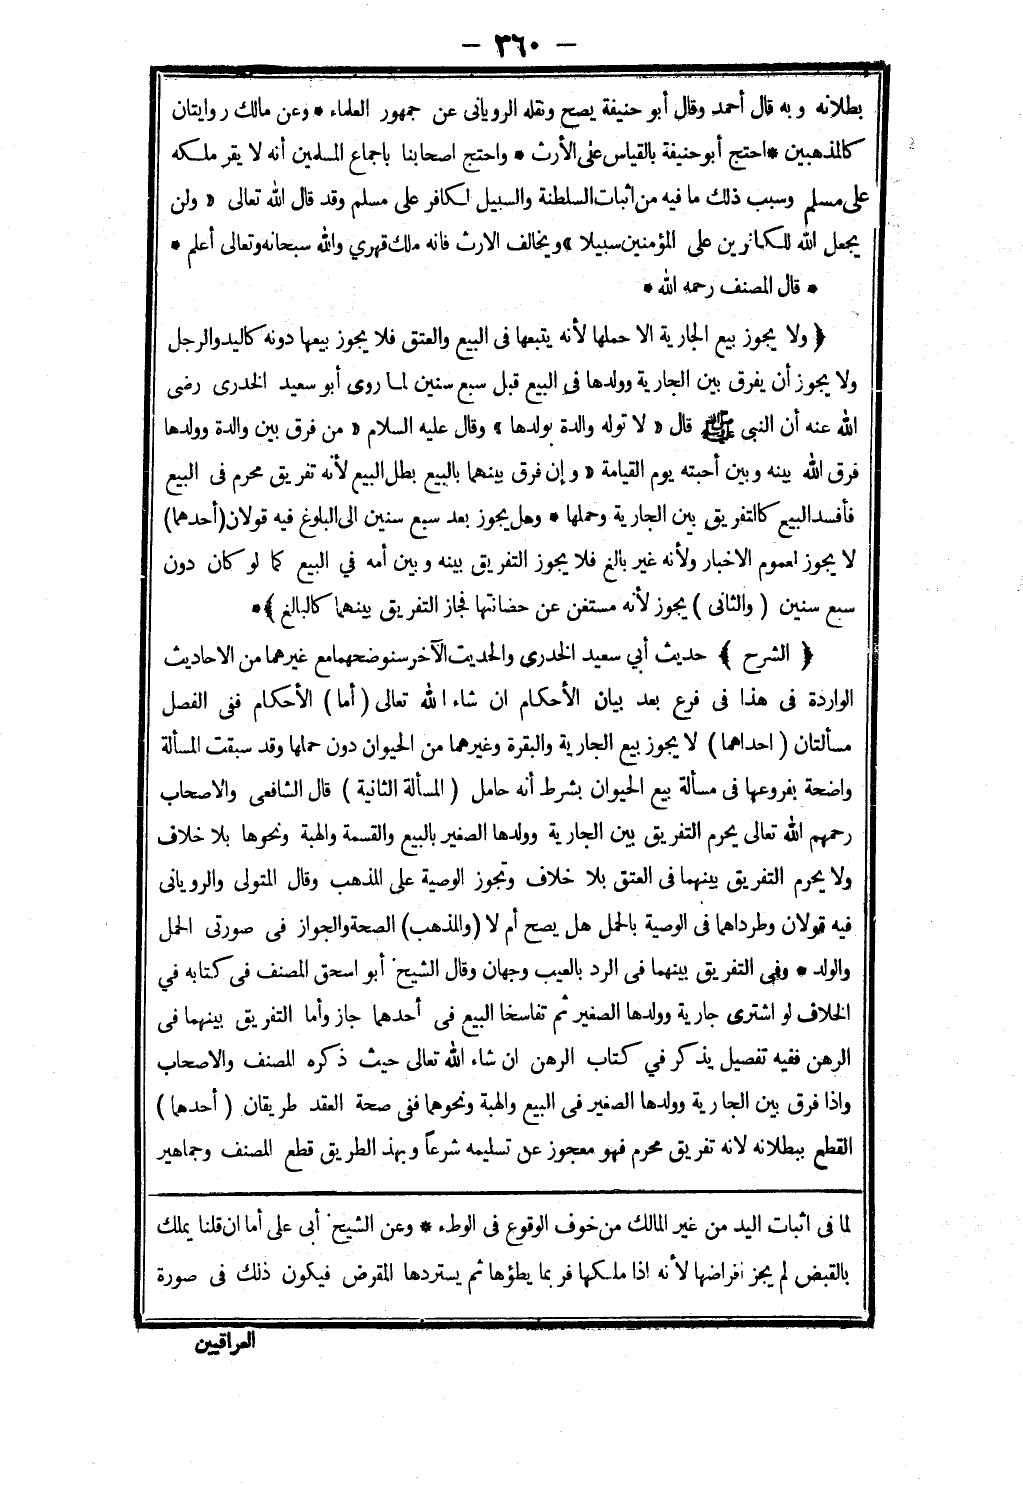 — ٣٦٠ —
بطلانه وبه قال أحمد وقال أبو حنيفة يصح ونقله الرويانى عن جمهور العلماء * وعن مالك روايتان
كالمذهبين * احتج أبو حنيفة بالقياس على الأرث * واحتج اصحابنا باجماع المسلمين أنه لا يقر ملكه
على مسلم وسبب ذلك ما فيه من اثبات السلطنة والسبيل لكافر على مسلم وقد قال الله تعالى « ولن
يجعل الله للكافرين على المؤمنين سبيلا » ويخالف الارث فانه ملك قهري والله سبحانه وتعالى أعلم *
* قال المصنف رحمه الله *
﴿ ولا يجوز بيع الجارية الا حملها لأنه يتبعها فى البيع والعتق فلا يجوز بيعها دونه كاليد والرجل
ولا يجوز أن يفرق بين الجارية وولدها فى البيع قبل سبع سنين لما روى أبو سعيد الخدرى رضى
الله عنه أن النبى ﷺ قال « لا توله والدة بولدها » وقال عليه السلام « من فرق بين والدة وولدها
فرق الله بينه وبين أحبته يوم القيامة « وإن فرق بينهما بالبيع بطل البيع لأنه تفريق محرم فى البيع
فأفسد البيع كالتفريق بين الجارية وحملها * وهل يجوز بعد سبع سنين الى البلوغ فيه قولان (أحدهما)
لا يجوز لعموم الاخبار ولأنه غير بالغ فلا يجوز التفريق بينه وبين أمه في البيع كما لو كان دون
سبع سنين ( والثانى ) يجوز لأنه مستغن عن حضانتها فجاز التفريق بينهما كالبالغ ﴾ *
﴿ الشرح ﴾ حديث أبي سعيد الخدرى والحديث الآخر سنوضحهما مع غيرهما من الاحاديث
الواردة فى هذا فى فرع بعد بيان الأحكام ان شاء الله تعالى ( أما ) الأحكام ففى الفصل
مسألتان ( احداهما ) لا يجوز بيع الجارية والبقرة وغيرهما من الحيوان دون حملها وقد سبقت المسألة
واضحة بفروعها فى مسألة بيع الحيوان بشرط أنه حامل ( المسألة الثانية ) قال الشافعى والاصحاب
رحمهم الله تعالى يحرم التفريق بين الجارية وولدها الصغير بالبيع والقسمة والهبة ونحوها بلا خلاف
ولا يحرم التفريق بينهما فى العتق بلا خلاف وتجوز الوصية على المذهب وقال المتولى والرويانى
فيه قولان وطرداهما فى الوصية بالحمل هل يصح أم لا (والمذهب) الصحة والجواز فى صورتى الحمل
والولد * وفى التفريق بينهما فى الرد بالعيب وجهان وقال الشيخ أبو اسحق المصنف فى كتابه في
الخلاف لو اشترى جارية وولدها الصغير ثم تفاسخا البيع فى أحدهما جاز وأما التفريق بينهما فى
الرهن ففيه تفصيل يذكر في كتاب الرهن ان شاء الله تعالى حيث ذكره المصنف والاصحاب
واذا فرق بين الجارية وولدها الصغير فى البيع والهبة ونحوهما ففى صحة العقد طريقان ( أحدهما )
القطع ببطلانه لانه تفريق محرم فهو معجوز عن تسليمه شرعاً وبهذ الطريق قطع المصنف وجماهير
لما فى اثبات اليد من غير المالك من خوف الوقوع فى الوطء * وعن الشيخ أبى على أما ان قلنا يملك
بالقبض لم يجز اقراضها لأنه اذا ملكها فربما يطؤها ثم يستردها المقرض فيكون ذلك فى صورة
العراقيين